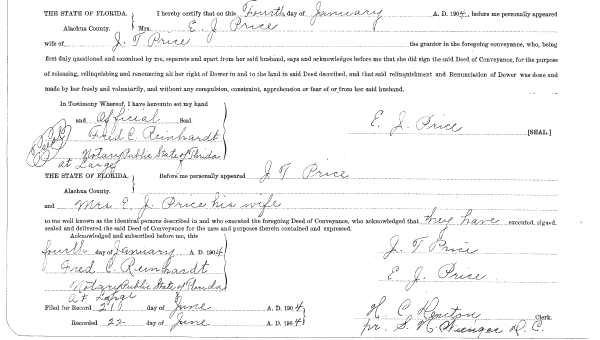 THE STATE OF FLORIDA. I hereby certify that on this Fourth day of January A. D. 1904, before me personally appeared
Alachua County. Mrs. E. J. Price
wife of J. T Price the grantor in the foregoing conveyance, who, being
first duly questioned and examined by me, separate and apart from her said husband, says and acknowledges before me that she did sign the said Deed of Conveyance, for the purpose
of releasing, relinquishing and renouncing all her right of Dower in and to the land in said Deed described, and that said relinquishment and Renunciation of Dower was done and
made by her freely and voluntarily, and without any compulsion, constraint, apprehension or fear of or from her said husband.
In Testimony Whereof, I have hereunto set my hand
and Official Seal
Fred C. Reinhardt E. J. Price [SEAL.]
Notary Public State of Florida
at Large
THE STATE OF FLORIDA. Before me personally appeared J T Price
Alachua County.
and Mrs E J Price his wife
to me well known as the identical persons described in and who executed the foregoing Deed of Conveyance, who acknowledged that they have executed, signed,
sealed and delivered the said Deed of Conveyance for the uses and purposes therein contained and expressed.
Acknowledged and subscribed before me, this
fourth day of January A. D. 1904 J. T Price
Fred C. Reinhardt E. J. Price
Notary Public State of Florida
At Large
Filed for Record 21 day of June A. D. 1904 H. C. Clerk.
Recorded 22 day of June A. D. 1904 pr. S. H. Wienges D. C.